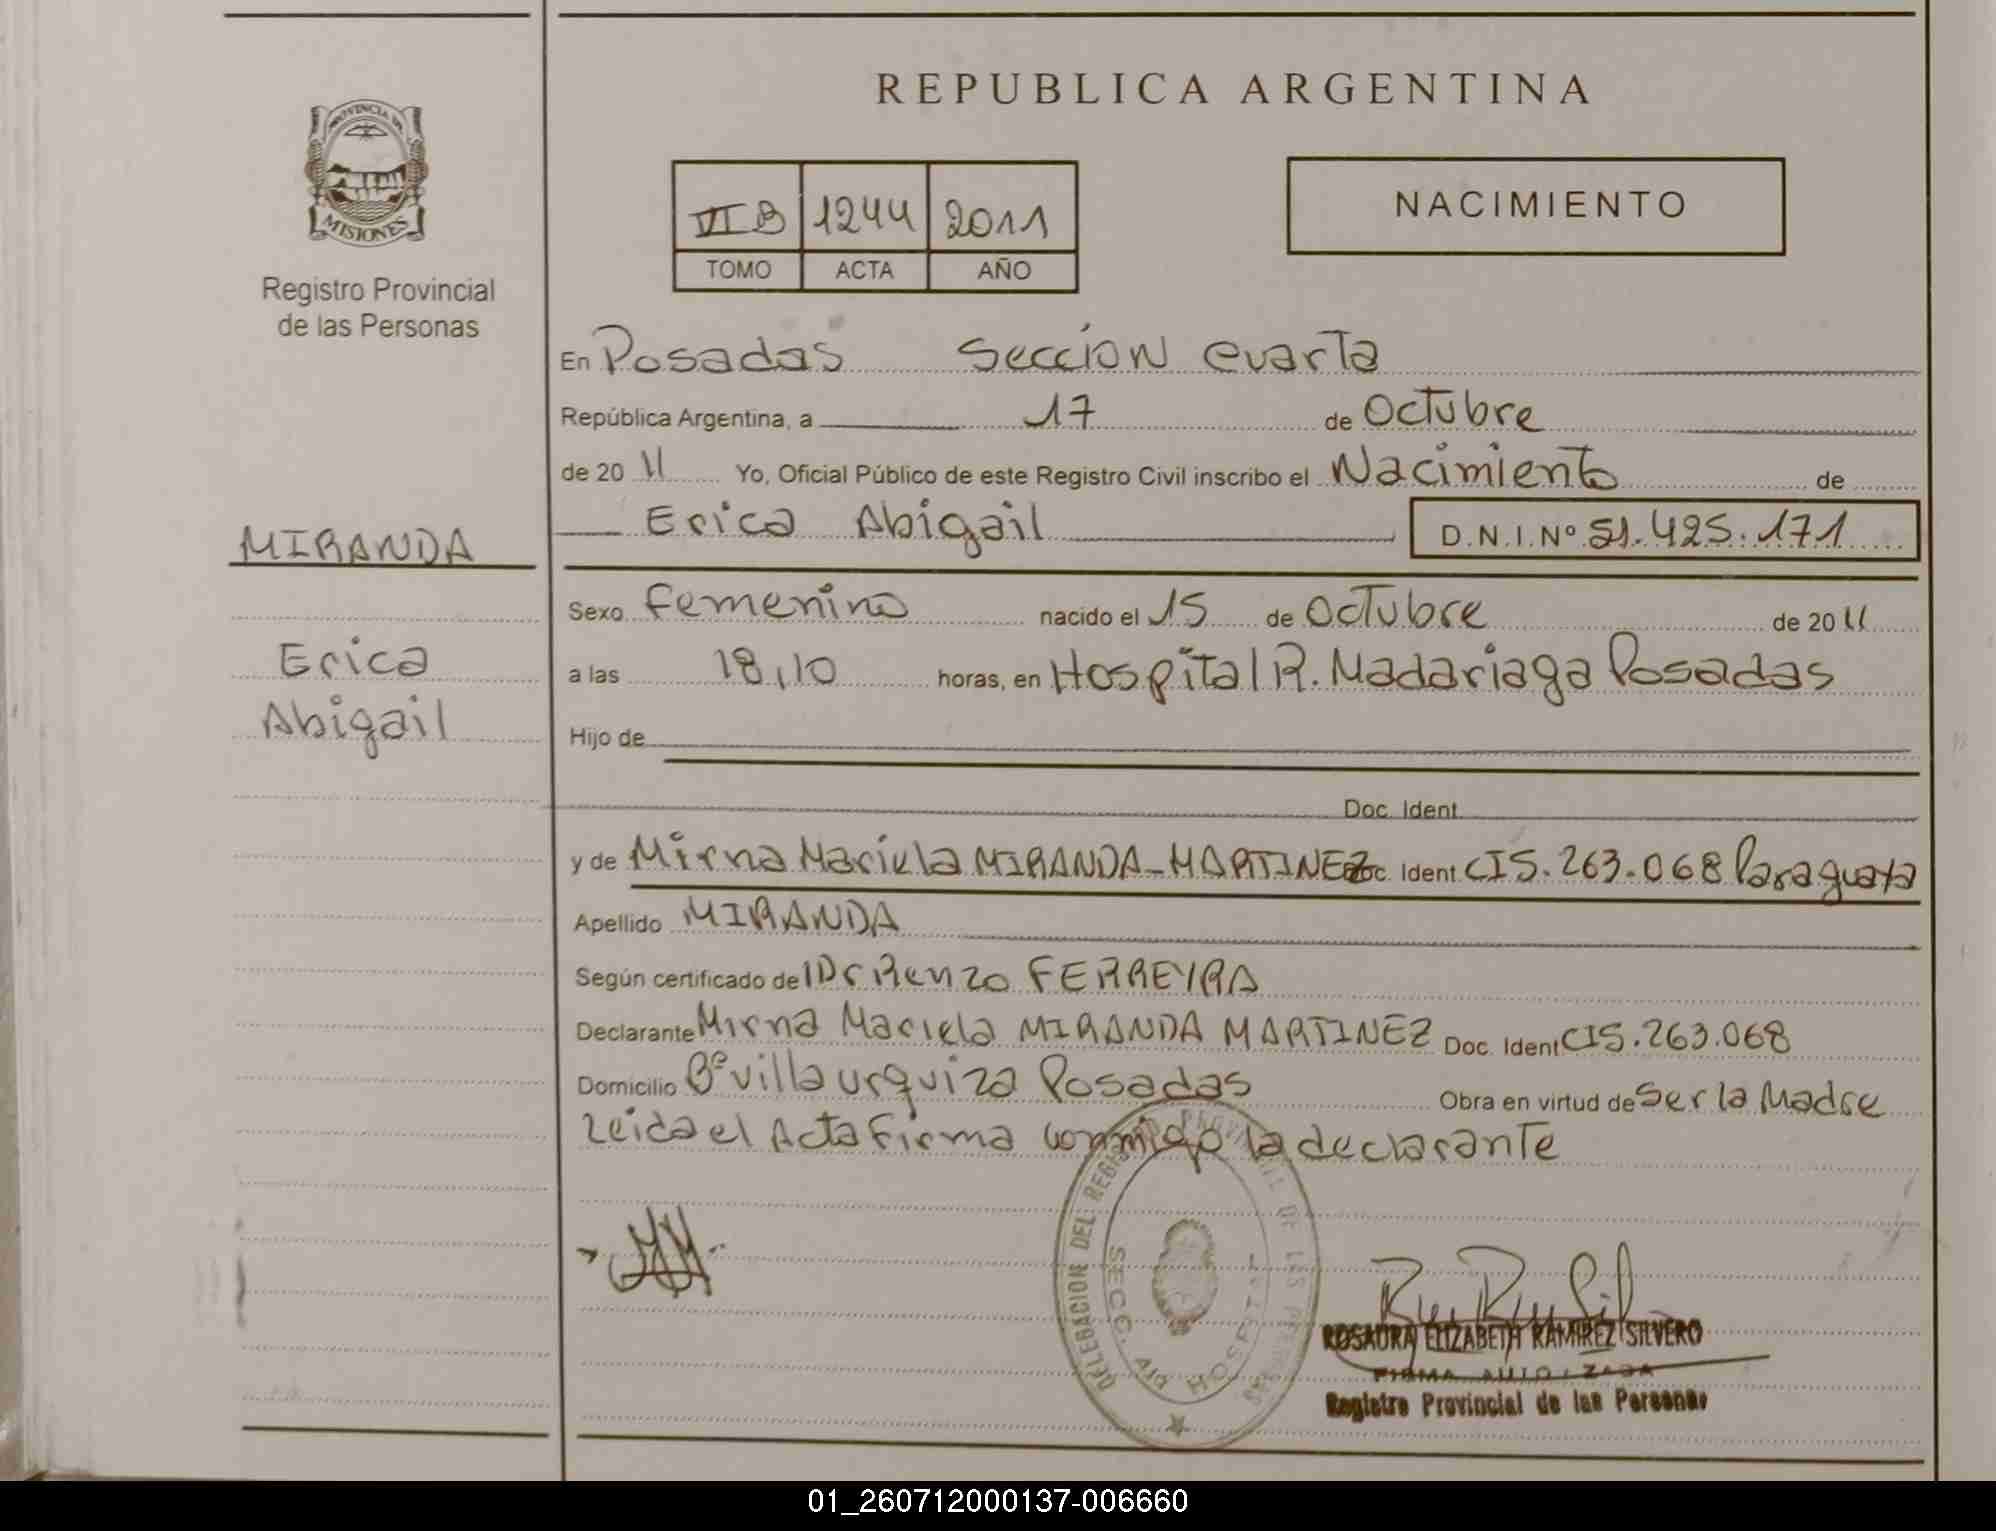 REPUBLICA ARGENTINA
PROVINCIA DE
MISIONES
Registro Provincial
de las Personas
VI B 1244 2011
TOMO ACTA AÑO
NACIMIENTO
En Posadas Sección Cuarta
República Argentina, a 17 de Octubre
de 20 11 Yo, Oficial Público de este Registro Civil inscribo el Nacimiento de
Erica Abigail D.N.I.Nº 51.425.171
MIRANDA
Erica
Abigail
Sexo Femenino nacido el 15 de Octubre de 20 11
a las 18,10 horas, en Hospital R. Madariaga Posadas
Hijo de
Doc. Ident.
y de Mirna Mariela MIRANDA-MARTINEZ Doc. Ident. CI 5.263.068 Paraguaya
Apellido MIRANDA
Según certificado del Dr Renzo FERREYRA
Declarante Mirna Mariela MIRANDA MARTINEZ Doc. Ident CI 5.263.068
Domicilio Bº villa urquiza Posadas Obra en virtud de Ser la Madre
Leida el Acta firma conmigo la declarante
DELEGACION DEL REGISTRO PROVINCIAL DE LAS PERSONAS
SECC. 4ta HOSPITAL
ROSAURA ELIZABETH RAMIREZ SILVERO
FIRMA AUTORIZADA
Registro Provincial de las Personas
01_260712000137-006660